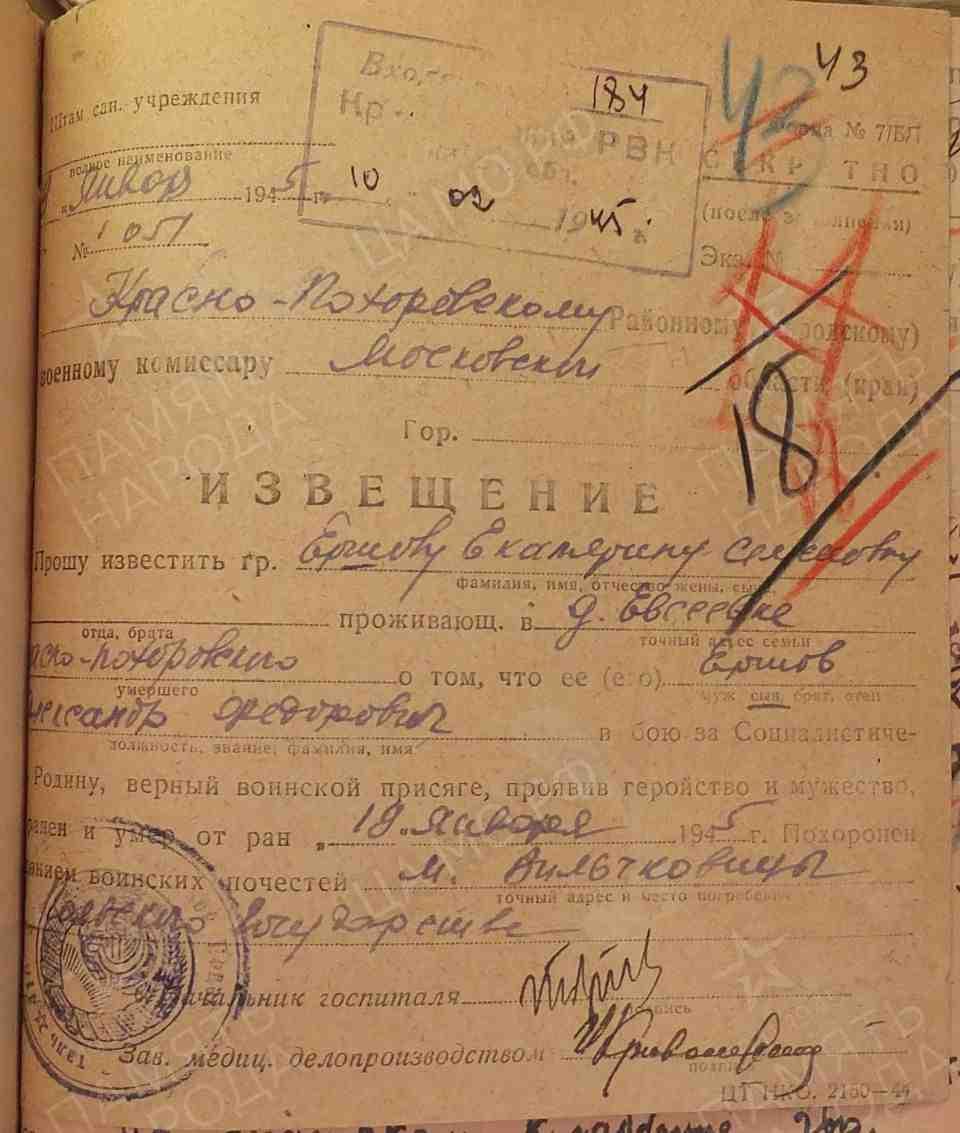 43
Вход
184
Штам сан. учреждения
Нр
РВК
Форма № 7/БЛ
полное наименование
СЕКРЕТНО
января 1945 г.
10 02 1945 г.
(после заполнения)
№ 1051
Экз. №
Красно-Пахоревскому Районному (Городскому)
военному комиссару Московской области (края)
Гор.
18
ИЗВЕЩЕНИЕ
Прошу известить гр. Ершову Екатярину Семеновну
фамилия, имя, отчество жены, сына,
проживающ. в д. Евсеевке
отца, брата
точный адрес семьи
асно-похоровского о том, что ее (его) Ершов
умершего
муж сын, брат, отец
лександр Федорович в бою за Социалистиче-
должность, звание, фамилия, имя
Родину, верный воинской присяге, проявив геройство и мужество,
ранен и умер от ран „18„ января 1945 г. Похоронен
нием воинских почестей м. Вильчковицы
точный адрес и место погребения
ольского государства
Начальник госпиталя
подпись
Зав. медиц. делопроизводством
подпись
ЦТ НКО. 2150—44
ПАМЯТЬ НАРОДА
ЦАМО РФ